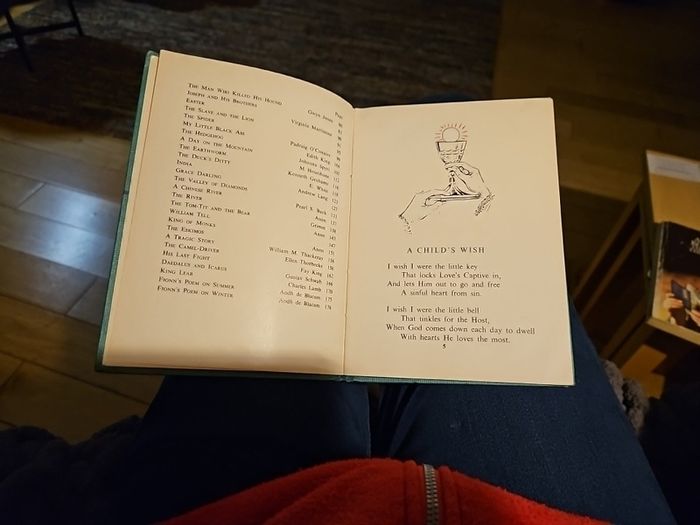 Page
THE MAN WHO KILLED HIS HOUND Gwyn Jones
JOSEPH AND HIS BROTHERS
EASTER
THE SLAVE AND THE LION
THE SPIDER
MY LITTLE BLACK ASS Padraig O'Conaire 99
THE HEDGEHOG Edith King
A DAY ON THE MOUNTAIN Johanna Spyri
THE EARTHWORM
THE DUCK'S DITTY Kenneth Grahame
INDIA
GRACE DARLING Andrew Lang
THE VALLEY OF DIAMONDS
A CHINESE RIVER Pearl S. Buck 131
THE RIVER Anon
THE TOM-TIT AND THE BEAR Grimm
WILLIAM TELL Anon
KING OF MONKS 147
THE ESKIMOS Anon
A TRAGIC STORY William M. Thackeray 156
THE CAMEL-DRIVER Ellen Thorbecke 158
HIS LAST FIGHT Fay King 162
DAEDALUS AND ICARUS Gustav Schwab 166
KING LEAR Charles Lamb 170
FIONN'S POEM ON SUMMER Aodh de Blacam 175
FIONN'S POEM ON WINTER Aodh de Blacam 176
A CHILD'S WISH
I wish I were the little key
That locks Love's Captive in,
And lets Him out to go and free
A sinful heart from sin.
I wish I were the little bell
That tinkles for the Host,
When God comes down each day to dwell
With hearts He loves the most.
5